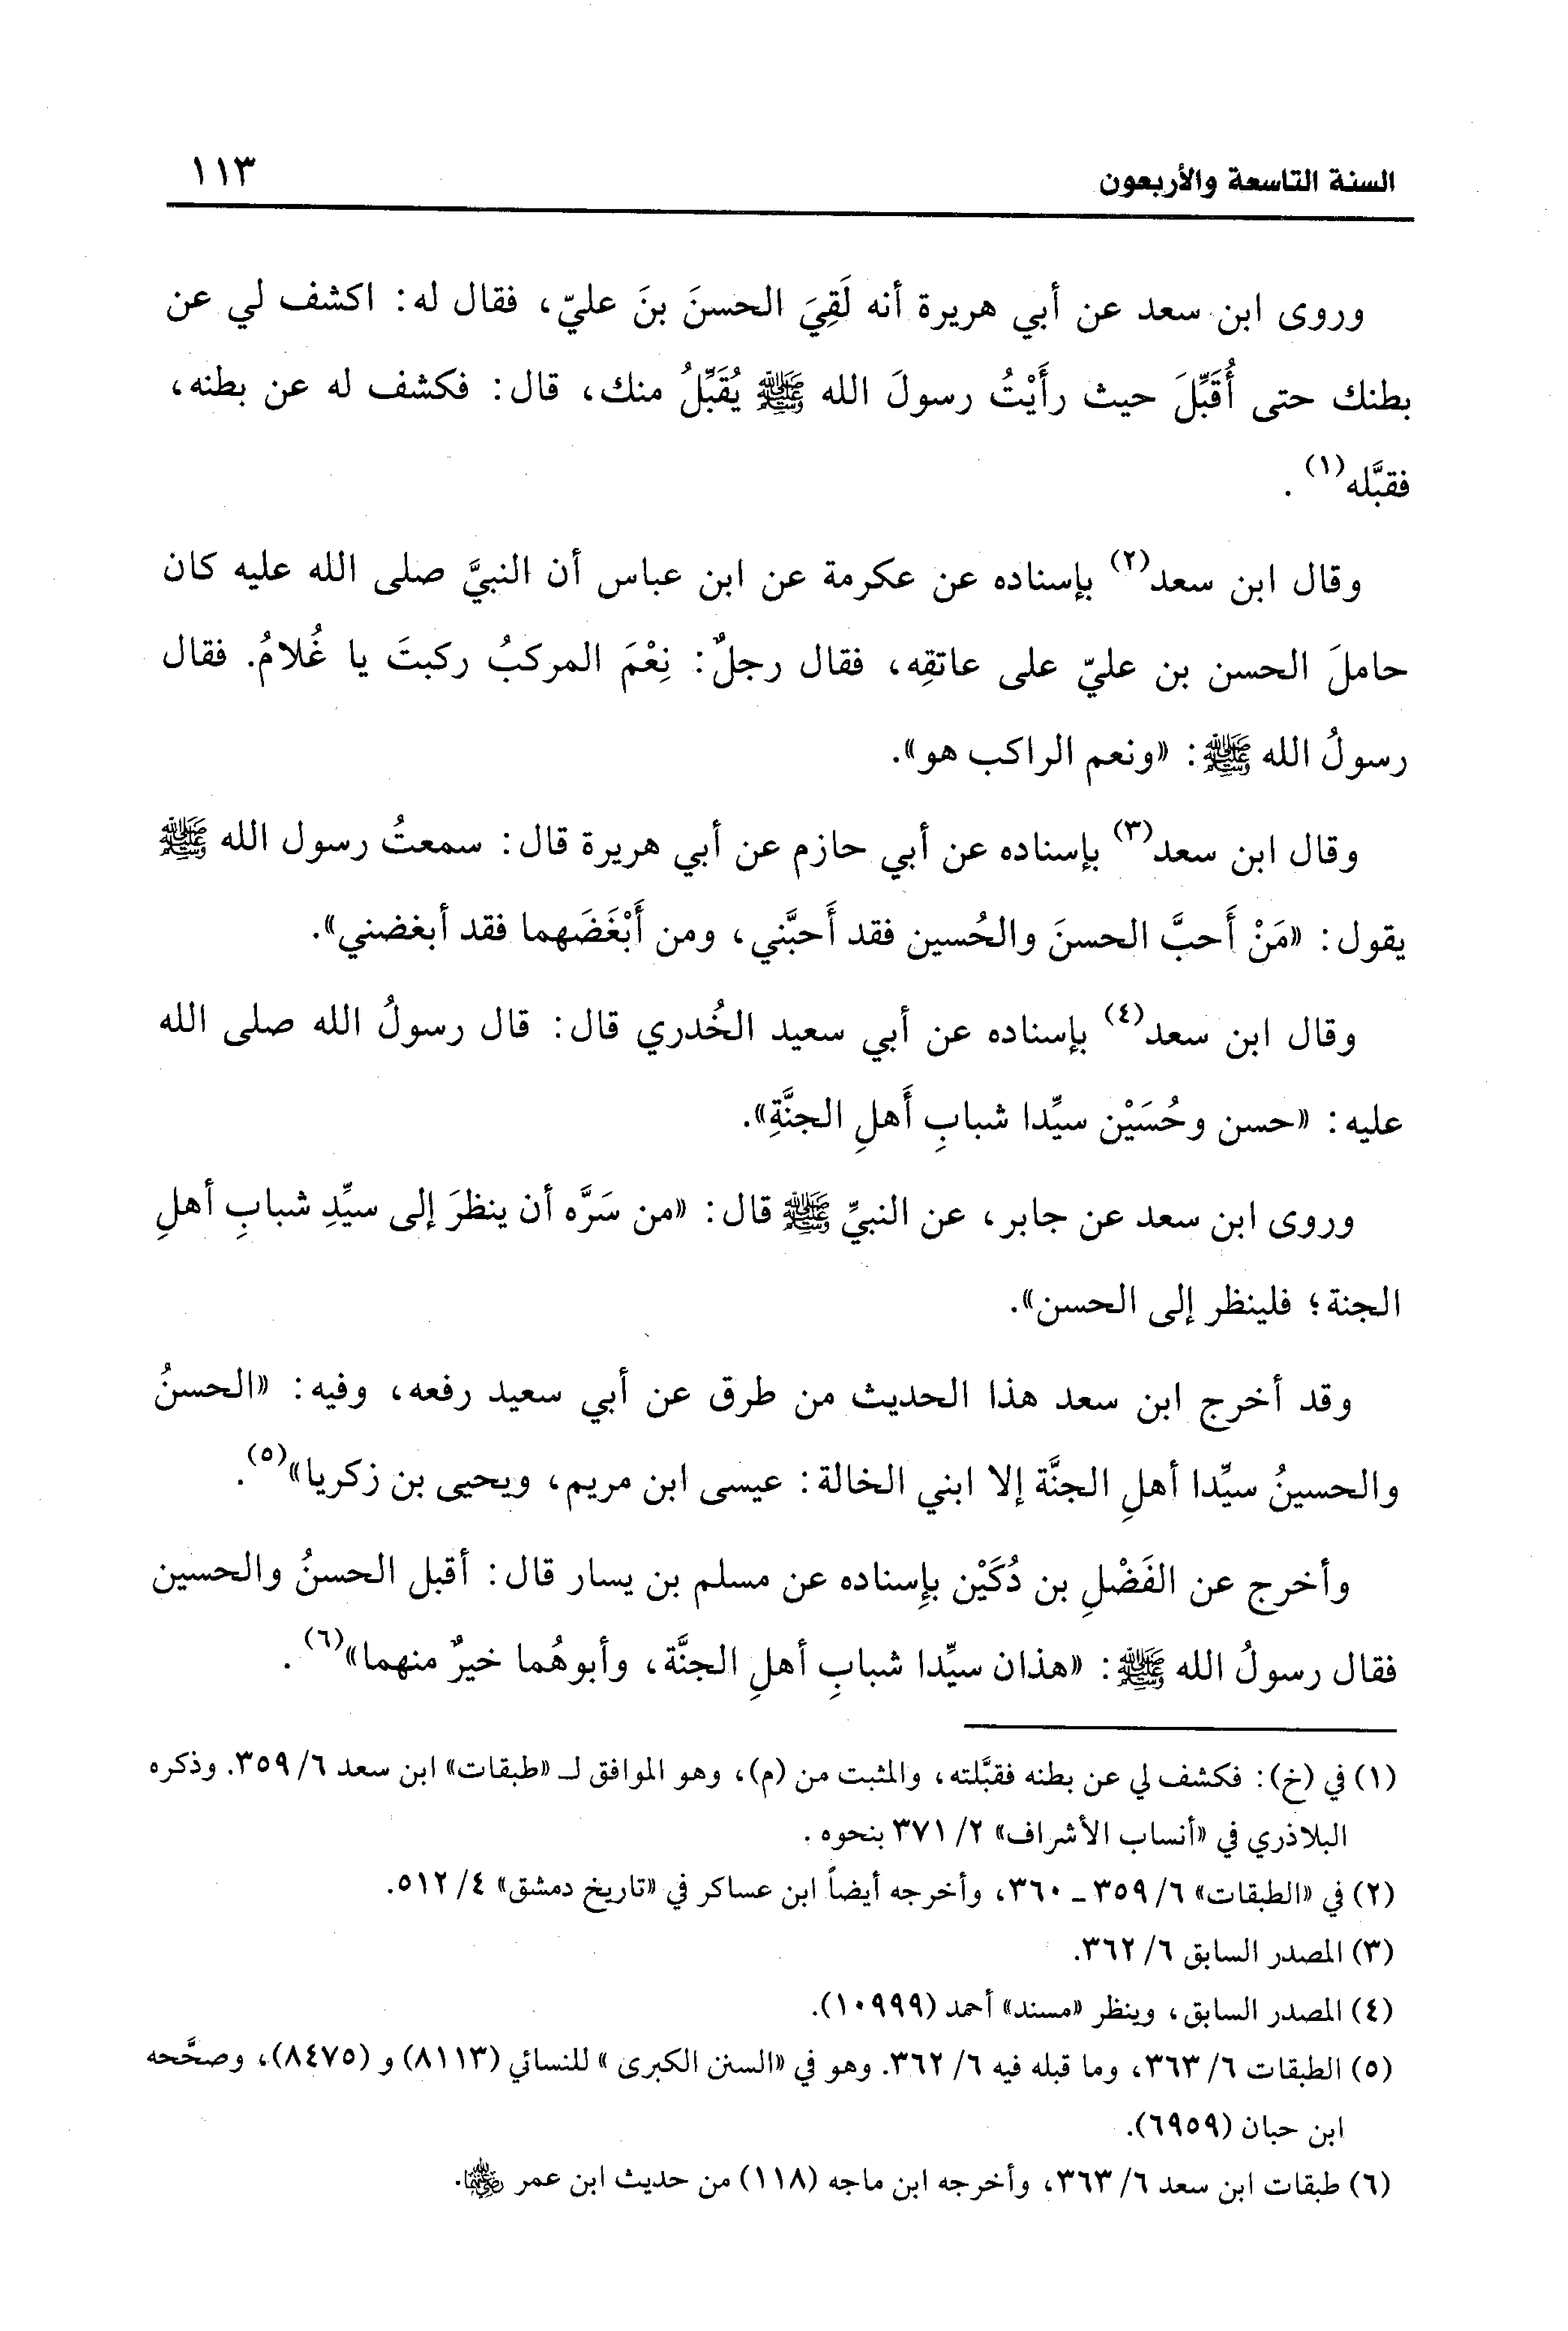 السنة التاسعة والأربعون ١١٣
وروى ابن سعد عن أبي هريرة أنه لَقِيَ الحسنَ بنَ عليّ، فقال له: اكشف لي عن
بطنك حتى أُقَبِّلَ حيث رأَيْتُ رسولَ الله ﷺ يُقَبِّلُ منك، قال: فكشف له عن بطنه،
فقبَّله(١).
وقال ابن سعد(٢) بإسناده عن عكرمة عن ابن عباس أن النبيَّ صلى الله عليه كان
حاملَ الحسن بن عليّ على عاتقِه، فقال رجلٌ: نِعْمَ المركبُ ركبتَ يا غُلامُ. فقال
رسولُ الله ﷺ: «ونعم الراكب هو».
وقال ابن سعد(٣) بإسناده عن أبي حازم عن أبي هريرة قال: سمعتُ رسول الله ﷺ
يقول: «مَنْ أَحبَّ الحسنَ والحُسين فقد أَحبَّني، ومن أَبْغَضَهما فقد أبغضني».
وقال ابن سعد(٤) بإسناده عن أبي سعيد الخُدري قال: قال رسولُ الله صلى الله
عليه: «حسن وحُسَيْن سيِّدا شبابِ أَهلِ الجنَّةِ».
وروى ابن سعد عن جابر، عن النبيِّ ﷺ قال: «من سَرَّه أن ينظرَ إلى سيِّدِ شبابِ أهلِ
الجنة؛ فلينظر إلى الحسن».
وقد أخرج ابن سعد هذا الحديث من طرق عن أبي سعيد رفعه، وفيه: «الحسنُ
والحسينُ سيِّدا أهلِ الجنَّة إلا ابني الخالة: عيسى ابن مريم، ويحيى بن زكريا»(٥).
وأخرج عن الفَضْلِ بن دُكَيْن بإِسناده عن مسلم بن يسار قال: أقبل الحسنُ والحسين
فقال رسولُ الله ﷺ: «هذان سيِّدا شبابِ أهلِ الجنَّة، وأبوهُما خيرٌ منهما»(٦).
(١) في (خ): فكشف لي عن بطنه فقبَّلته، والمثبت من (م)، وهو الموافق لـ «طبقات» ابن سعد ٦/ ٣٥٩. وذكره
البلاذري في «أنساب الأشراف» ٢/ ٣٧١ بنحوه.
(٢) في «الطبقات» ٦/ ٣٥٩ ـ ٣٦٠، وأخرجه أيضاً ابن عساكر في «تاريخ دمشق» ٤/ ٥١٢.
(٣) المصدر السابق ٦/ ٣٦٢.
(٤) المصدر السابق، وينظر «مسند» أحمد (١٠٩٩٩).
(٥) الطبقات ٦/ ٣٦٣، وما قبله فيه ٦/ ٣٦٢. وهو في «السنن الكبرى» للنسائي (٨١١٣) و (٨٤٧٥)، وصحَّحه
ابن حبان (٦٩٥٩).
(٦) طبقات ابن سعد ٦/ ٣٦٣، وأخرجه ابن ماجه (١١٨) من حديث ابن عمر رضي الله عنهما.